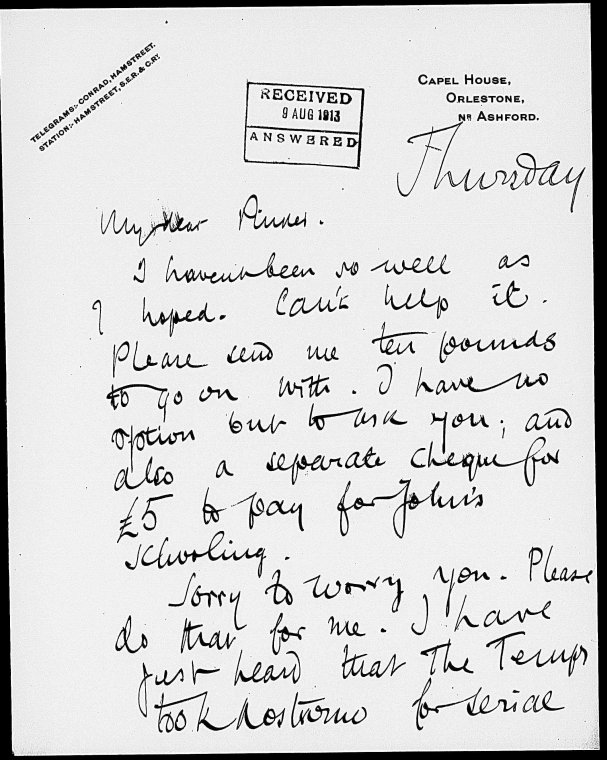 TELEGRAMS:- CONRAD, HAMSTREET.
STATION:- HAMSTREET, S.E.R. & C.RY.
RECEIVED
9 AUG 1913
ANSWERED
CAPEL HOUSE,
ORLESTONE,
NR ASHFORD.
Thursday
My dear Pinker.
I haven't been so well as
I hoped. Can't help it.
Please send me ten pounds
to go on with. I have no
option but to ask you; and
also a separate cheque for
£5 to pay for John's
schooling.
Sorry to worry you. Please
do that for me. I have
just heard that The Temps
took Nostromo for serial